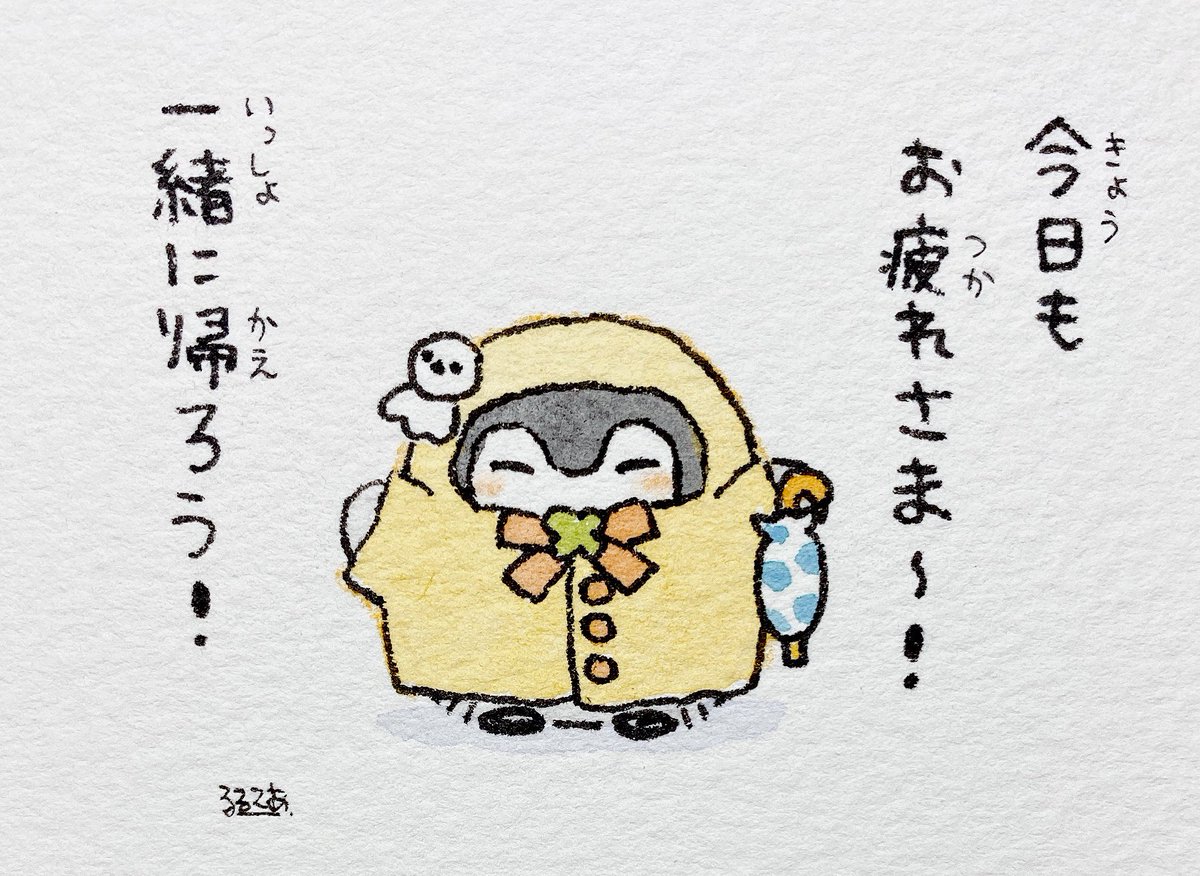 今日も
きょう
お疲れさま～！
つか
一緒に帰ろう！
いっしょ かえ
るるてあ